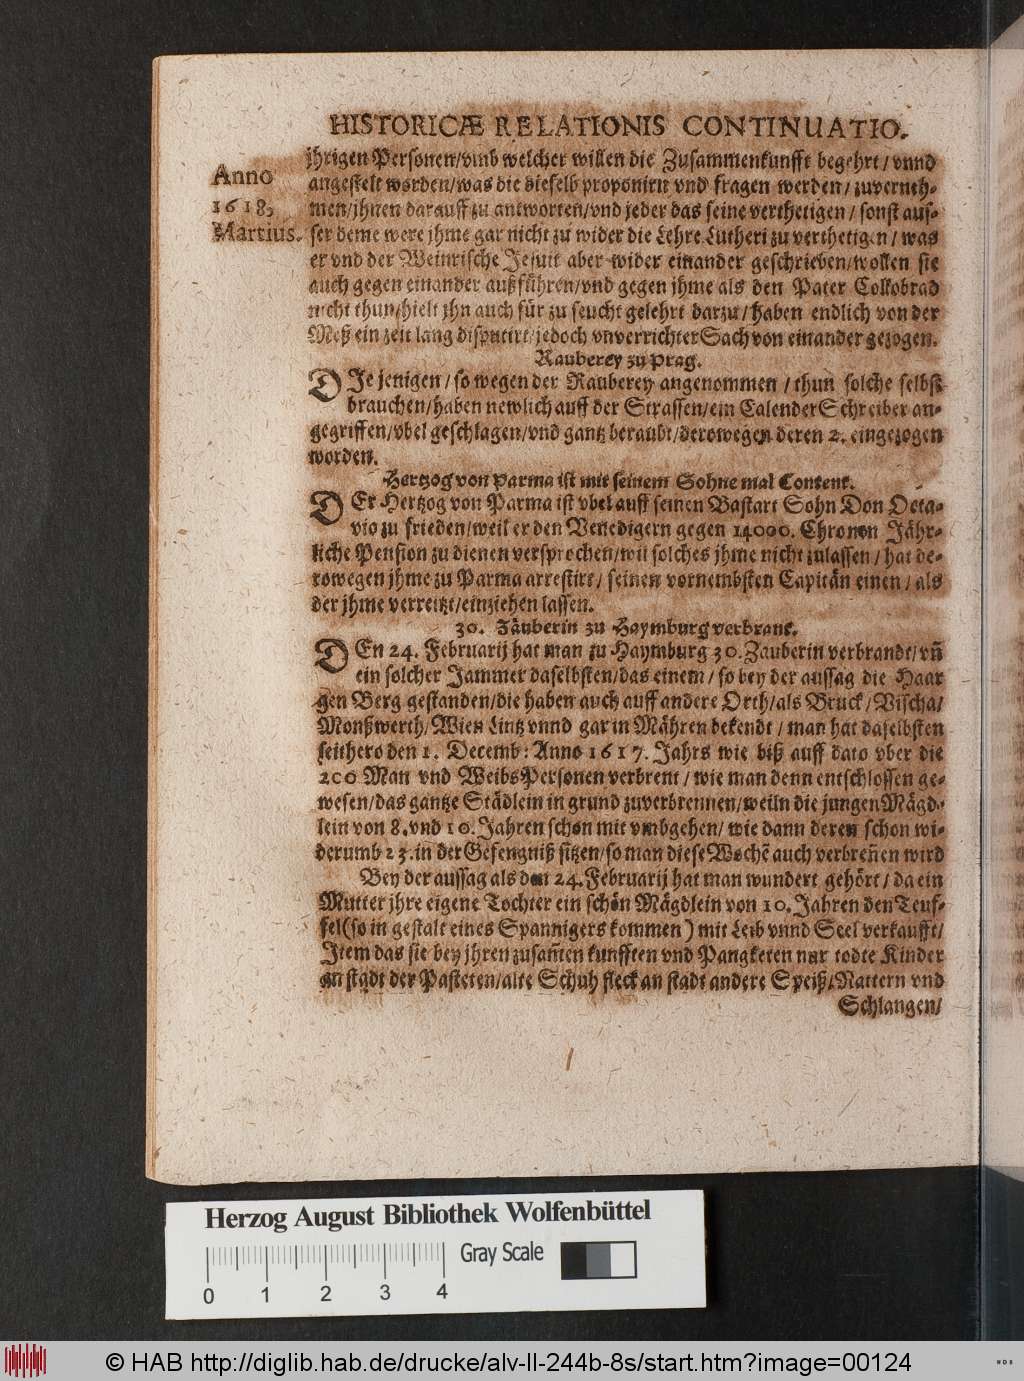 HISTORICÆ RELATIONIS CONTINUATIO.
Anno
1618,
Martius.
jhrigen Personen/vmb welcher willen die Zusammenkunfft begehrt/vnnd
angestelt worden/was die dieselb proponirn vnd fragen werden/zuverneh-
men/jhnen darauff zu antworten/vnd jeder das seine verthetigen/sonst aus-
ser deme were jhme gar nicht zu wider die Lehre Lutheri zu verthetigen/was
er vnd der Weinrische Jesuit aber wider einander geschrieben/wollen sie
auch gegen einander außführen/vnd gegen jhme als den Pater Collobrad
nicht thun/hielt jhn auch für zu seucht gelehrt darzu/haben endlich von der
Meß ein zeit lang disputirt/jedoch vnverrichter Sach von einander gezogen.
Rauberey zu Prag.
DJe jenigen/so wegen der Rauberey angenommen/thun solche selbst
brauchen/haben newlich auff der Strassen/ein Calender Schreiber an-
gegriffen/vbel geschlagen/vnd gantz beraubt/derowegen deren 2. eingezogen
worden.
Hertzog von Parma ist mit seinem Sohne mal Content.
DEr Hertzog von Parma ist vbel auff seinen Bastart Sohn Don Octa-
vio zu frieden/weil er den Venedigern gegen 14000. Chronen Jähr-
liche Pension zu dienen versprochen/wil solches jhme nicht zulassen/hat de-
rowegen jhme zu Parma arrestirt/seinen vornembsten Capitän einen/als
der jhme verreitzt/einziehen lassen.
30. Zäuberin zu Haymburg verbrant.
DEn 24. Februarij hat man zu Haymburg 30. Zauberin verbrandt/vñ
ein solcher Jammer daselbsten/das einem/so bey der aussag die Haar
gen Berg gestanden/die haben auch auff andere Orth/als Bruck/Vischa/
Monßwerth/Wien Lintz vnnd gar in Mähren bekendt/man hat daselbsten
seithero den 1. Decemb: Anno 1617. Jahrs wie biß auff dato vber die
200 Man vnd WeibsPersonen verbrent/wie man denn entschlossen ge-
wesen/das gantze Städlein in grund zuverbrennen/weiln die jungen Mägd-
lein von 8. vnd 10. Jahren schon mit vmbgehen/wie dann deren schon wi-
derumb 23. in der Gefengniß sitzen/so man diese Wochẽ auch verbreñen wird
Bey der aussag als den 24. Februarij hat man wundert gehört/da ein
Mutter jhre eigene Tochter ein schön Mägdlein von 10. Jahren den Teuf-
fel (so in gestalt eines Spannigers kommen) mit Leib vnnd Seel verkaufft/
Jtem das sie bey jhren zusam̃en kunfften vnd Pangketen nur todte Kinder
an stadt der Pasteten/alte Schuh fleck an stadt andere Speiß/Nattern vnd
Schlangen/
Herzog August Bibliothek Wolfenbüttel
Gray Scale
0 1 2 3 4
© HAB http://diglib.hab.de/drucke/alv-ll-244b-8s/start.htm?image=00124